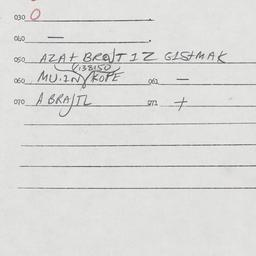 030 O
040 —
050 AZAT BRAT IZ GISTMAK
V138150
060 MU.IN KOPE 061 —
070 A BRAJTL 071 +